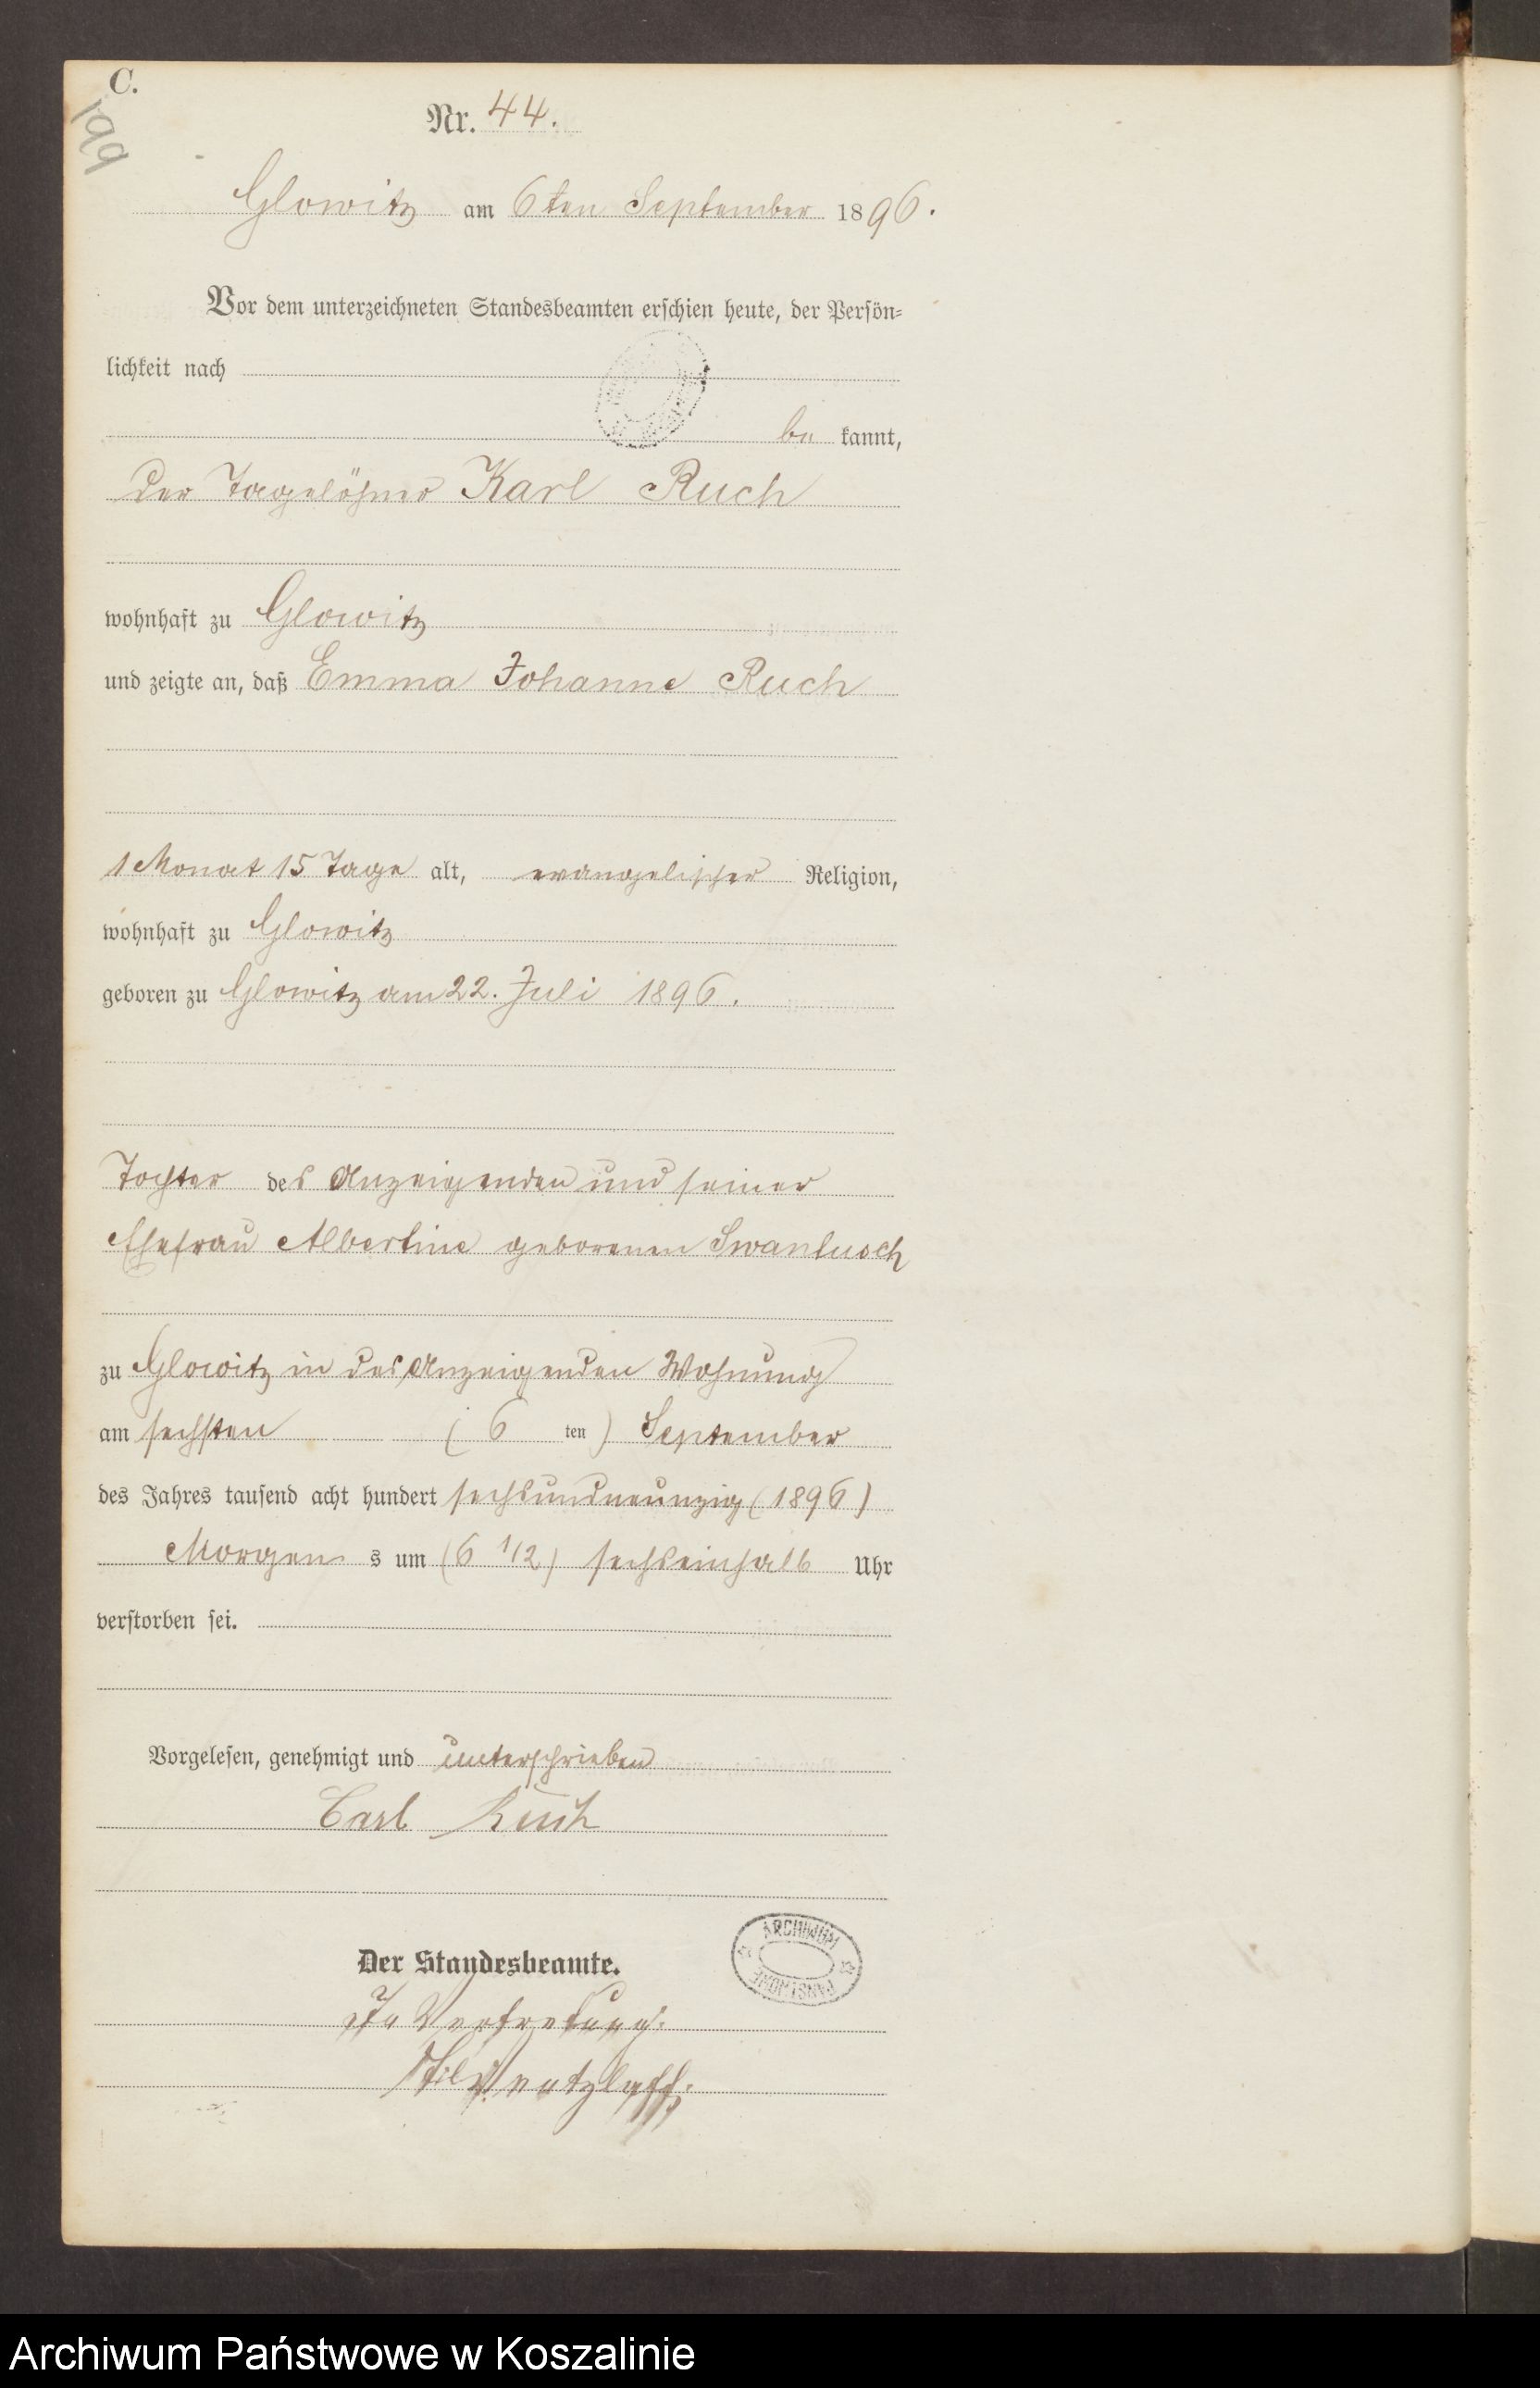 C.
199
Nr. 44.
Glowitz am 6ten September 1896.
Vor dem unterzeichneten Standesbeamten erschien heute, der Persön-
lichkeit nach
be kannt,
der Tagelöhner Karl Ruch
wohnhaft zu Glowitz
und zeigte an, daß Emma Johanne Ruch
1 Monat 15 Tage alt, evangelischer Religion,
wohnhaft zu Glowitz
geboren zu Glowitz am 22. Juli 1896.
Tochter des Anzeigenden und seiner
Ehefrau Albertine geborenen
zu Glowitz in des Anzeigenden Wohnung
am sechsten (6 ten) September
des Jahres tausend acht hundert sechsundneunzig (1896)
Morgen s um (6 1/2) sechseinhalb Uhr
verstorben sei.
Vorgelesen, genehmigt und unterschrieben
Carl Ruch
Der Standesbeamte.
ARCHIWUM
PAŃSTWOWE
In Vertretung.
Archiwum Państwowe w Koszalinie